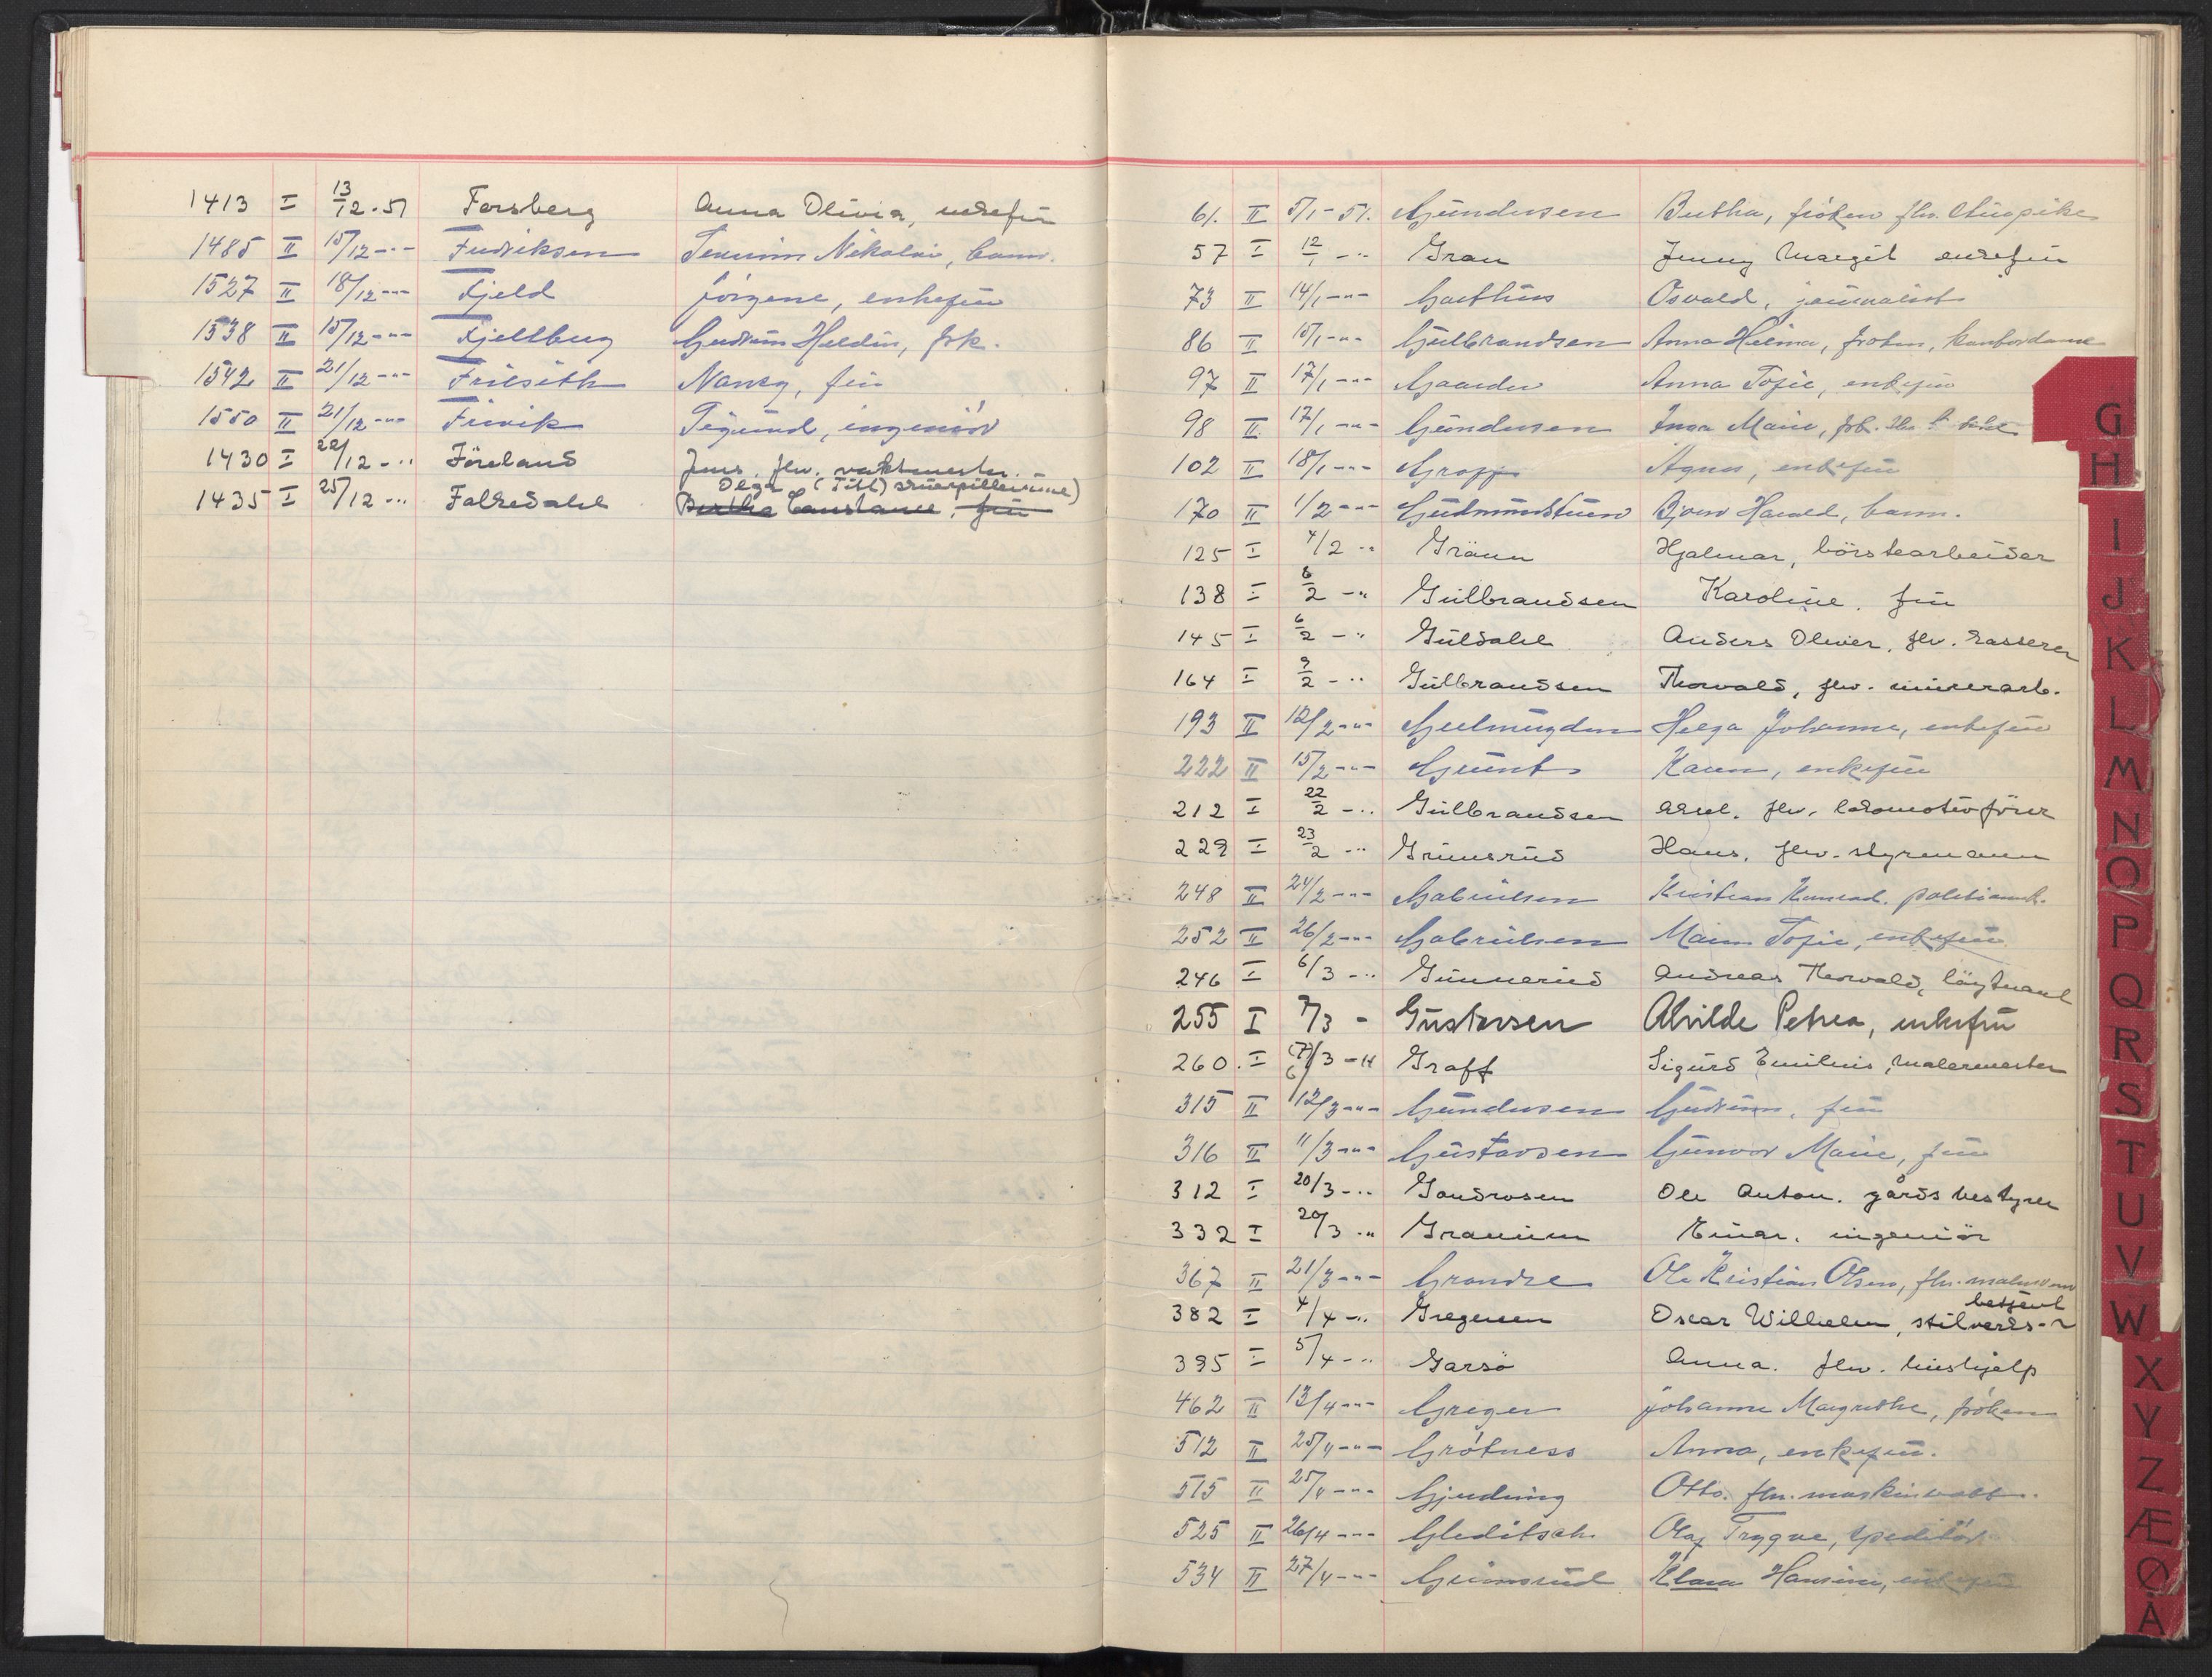 1413 I 13/12-51 Forsberg Anna Olivia, enkefrü
1485 II 15/12 -"- Fredriksen Nikolai, barn.
1527 II 18/12 -"- Fjeld Jörgine, enkefrü
1538 II 15/12 -"- Fjeldberg Gudrün frk.
1542 II 21/12 -"- Nancy, frü
1550 II 21/12 -"- ingeniör
1430 I 22/12 -"- Föreland Jens, flv. vaktmester.
Olga (Titt)
1435 I 25/12 -"- Falkedahl Bertha Constance, frü
61. II 5/1-51. Gündersen Bertha, fröken flv.
57 I 12/1 -"- Gran Jenny Margit enkefrü
73 II 14/1 -"- Osvald, journalist
86 II 15/1 -"- Gülbrandsen Anna Helma, fröken, kontordame
97 II 17/1 -"- Gaarder Anna Sofie, enkefrü
98 II 17/1 -"- Gündersen Inga Marie, frk.
102 II 18/1 -"- Agnes, enkefrü
170 II 1/2 -"- Bjørn Harald, barn.
125 I 4/2 -"- Hjalmar, börstearbeider
138 I 6/2 -"- Gülbrandsen Karoline. frü
145 I 6/2 -"- Güldahl Anders Oliver, flv. kasserer
164 I 9/2 -"- Gülbrandsen Thorvald, flv. mürerarb.
193 II 12/2 -"- Helga Johanne, enkefrü
222 II 15/2 -"- Karen, enkefrü
212 I 22/2 -"- Gülbrandsen Aksel. flv. lokomotivförer
229 I 23/2 -"- Grimsrüd Hans. flv. styrmann
248 II 24/2 -"- Gabrielsen Kristian Konrad.
252 II 26/2 -"- Gabrielsen Maren Sofie, enkefrü
246 I 6/3 -"- Günnerüd Andreas Thorvald, löytnant
255 I 7/3 - Güstavsen Alvilde Petrea, enkefrü
260. I 7/3 -"- Graff Sigurd Emilius, malermester
315 II 12/3 -"- Gündersen Güdrün, frü
316 II 11/3 -"- Güstavsen Günvor Marie, frü
312 I 20/3 -"- Gaüdrosen Ole Anton. gårdsbestyrer
332 I 20/3 -"- Einar. ingeniör
367 II 21/3 -"- Grandze Ole Kristian Olsen, flv.
382 I 4/4 -"- Gregersen Oscar Wilhelm, betjent
395 I 5/4 -"- Garsö Anna. flv. hüshjelp
462 II 13/4 -"- Greger Johanne Margrethe, fröken
512 II 25/4 -"- Grötness Anna, enkefrü.
515 II 25/4 -"- Gjerdring Otto. flv.
525 II 26/4 -"- Gleditsch Olaf Trygve, speditör
534 II 27/4 -"- Grimsrüd Klara Hansine, enkefrü
G
H
I
J
K
L
M
N
O
P
Q
R
S
T
U
V
W
X
Y
Z
Æ
Ø
Å